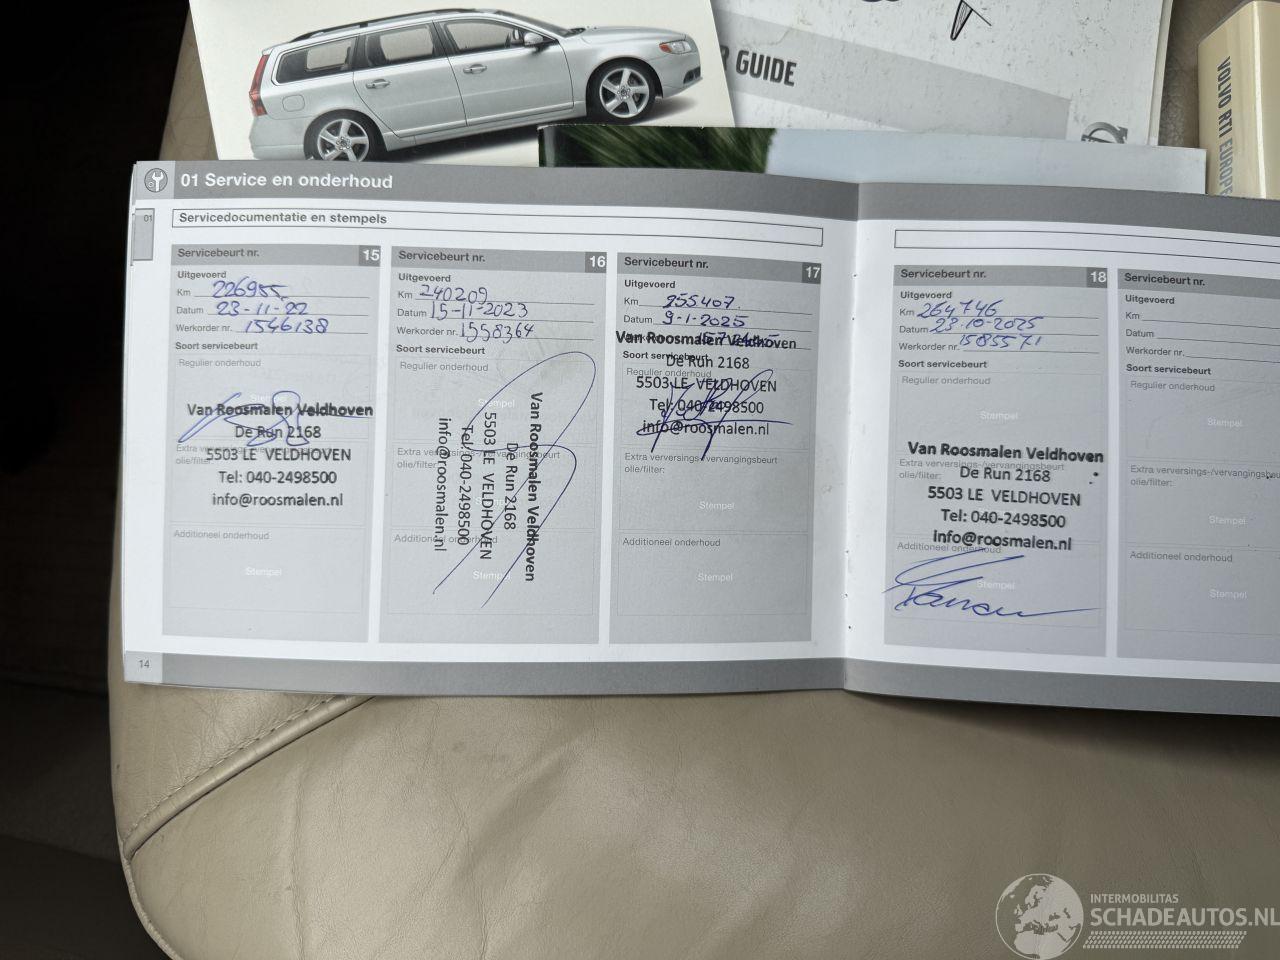 R GUIDE
VOLVO RTI EUROPE
01 Service en onderhoud
01
Servicedocumentatie en stempels
Servicebeurt nr. 15
Uitgevoerd
Km 226955
Datum 23-11-22
Werkorder nr. 1546138
Soort servicebeurt
Regulier onderhoud
Stempel
Van Roosmalen Veldhoven
De Run 2168
5503 LE VELDHOVEN
Tel: 040-2498500
info@roosmalen.nl
Extra verversings-/vervangingsbeurt
olie/filter:
Additioneel onderhoud
Stempel
Servicebeurt nr. 16
Uitgevoerd
Km 240209
Datum 15-11-2023
Werkorder nr. 1558364
Soort servicebeurt
Regulier onderhoud
Stempel
Van Roosmalen Veldhoven
De Run 2168
5503 LE VELDHOVEN
Tel: 040-2498500
info@roosmalen.nl
Extra verversings-/vervangingsbeurt
olie/filter:
Additioneel onderhoud
Stempel
Servicebeurt nr. 17
Uitgevoerd
Km 255407
Datum 9-1-2025
Van Roosmalen Veldhoven
Soort servicebeurt
De Run 2168
Regulier onderhoud
5503 LE VELDHOVEN
Tel: 040-2498500
info@roosmalen.nl
Extra verversings-/vervangingsbeurt
olie/filter:
Stempel
Additioneel onderhoud
Stempel
Servicebeurt nr. 18
Uitgevoerd
Km 264746
Datum 23-10-2025
Werkorder nr. 1585571
Soort servicebeurt
Regulier onderhoud
Stempel
Van Roosmalen Veldhoven
Extra verversings-/vervangingsbeurt
olie/filter:
De Run 2168
5503 LE VELDHOVEN
Tel: 040-2498500
info@roosmalen.nl
Additioneel onderhoud
Stempel
Servicebeurt nr.
Uitgevoerd
Km
Datum
Werkorder nr.
Soort servicebeurt
Regulier onderhoud
Stempel
Extra verversings-/vervangingsbeurt
olie/filter:
Stempel
Additioneel onderhoud
Stempel
14
INTERMOBILITAS
SCHADEAUTOS.NL